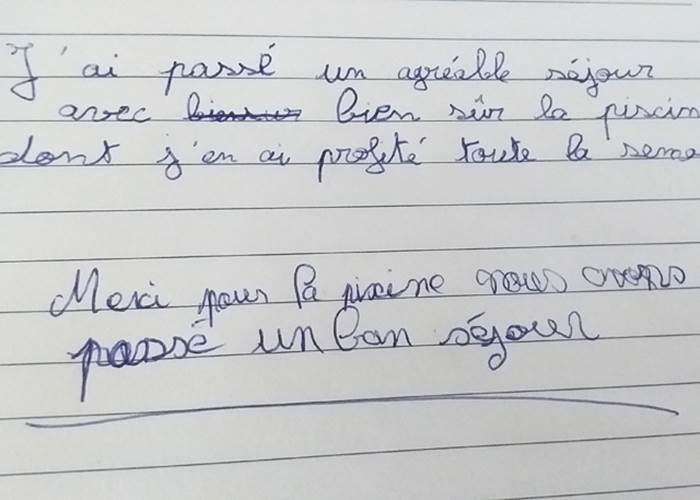 J'ai passé un agréable séjour
avec bien sûr la piscin
dont j'en ai profité toute la sema
Merci pour la piscine nous avons
passé un bon séjour